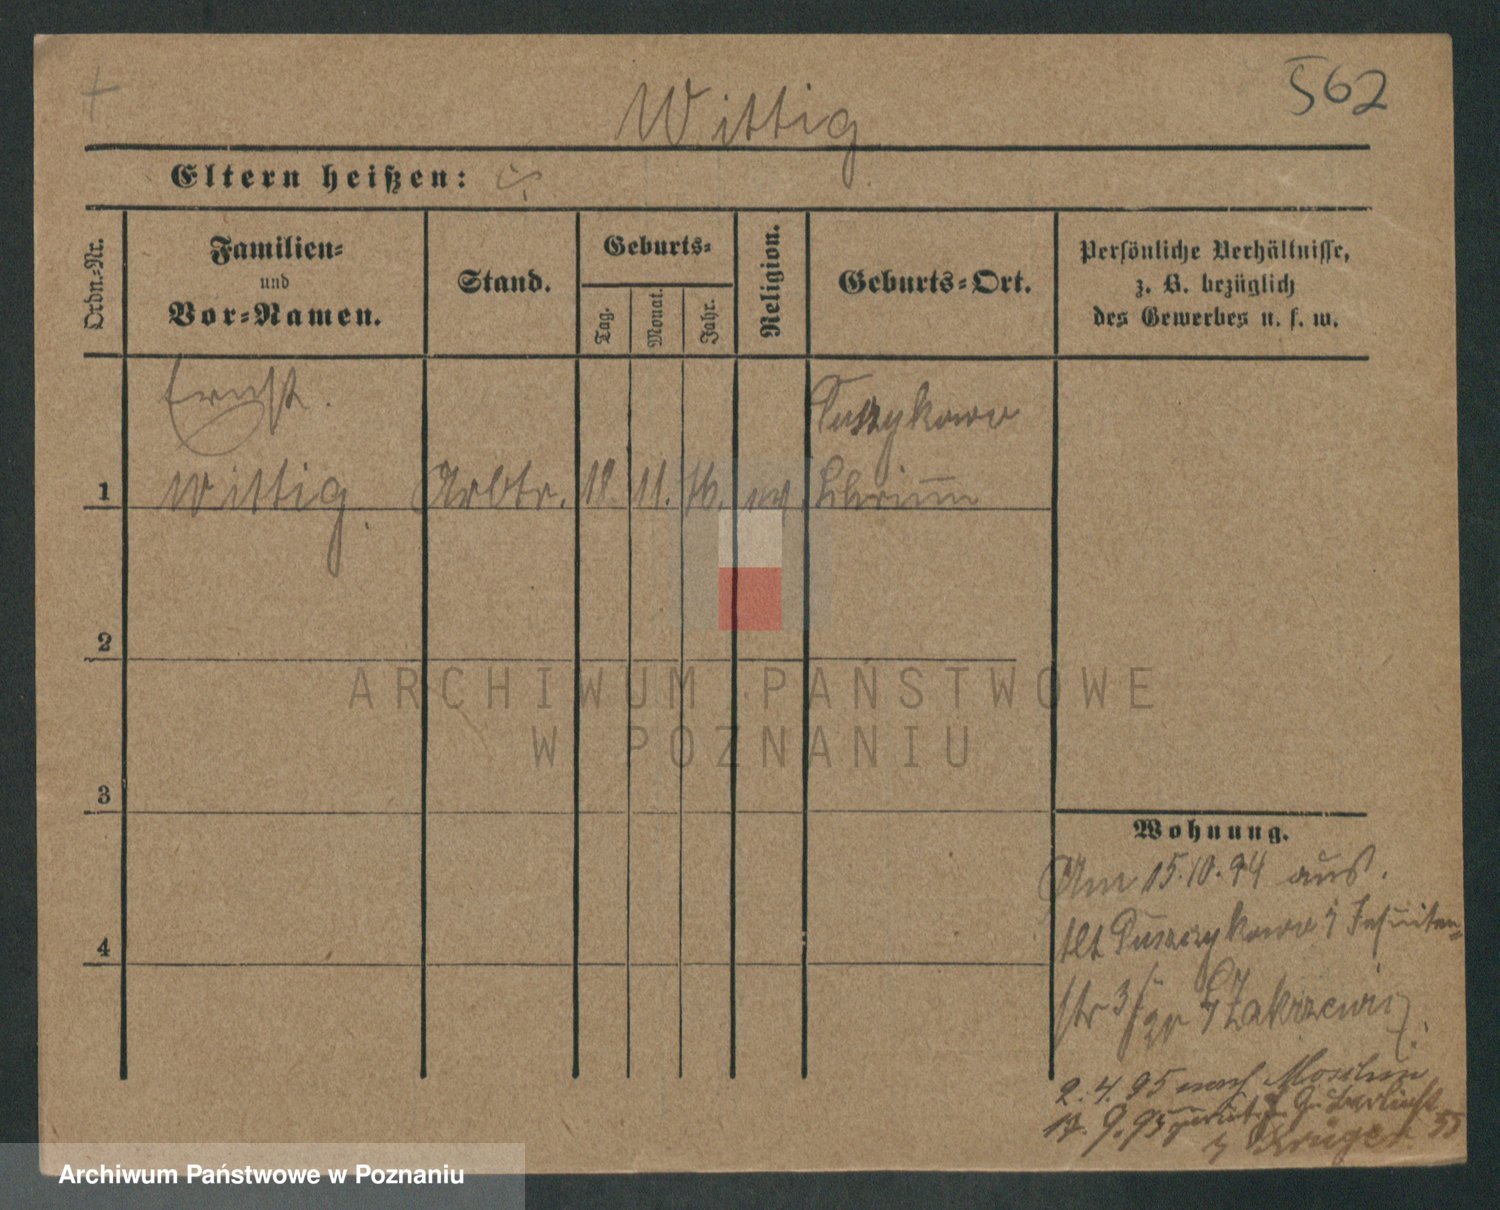 562
Wittig
Eltern heißen:
Ordn.-Nr.
Familien-
und
Vor-Namen.
Stand.
Geburts-
Tag.
Monat.
Jahr.
Religion.
Geburts-Ort.
Persönliche Verhältnisse,
z. B. bezüglich
des Gewerbes u. s. w.
Ernst
Wittig
1
Arbtr.
18.
11.
76.
ev.
Puszykowo
Schrimm
2
3
4
Wohnung.
Am 15.10.94 aus
Puszczykowo Jesuiten-
str 3
2.4.95 nach Moschin
17.9.95 zurück
Krüger
ARCHIWUM PAŃSTWOWE
W POZNANIU
Archiwum Państwowe w Poznaniu